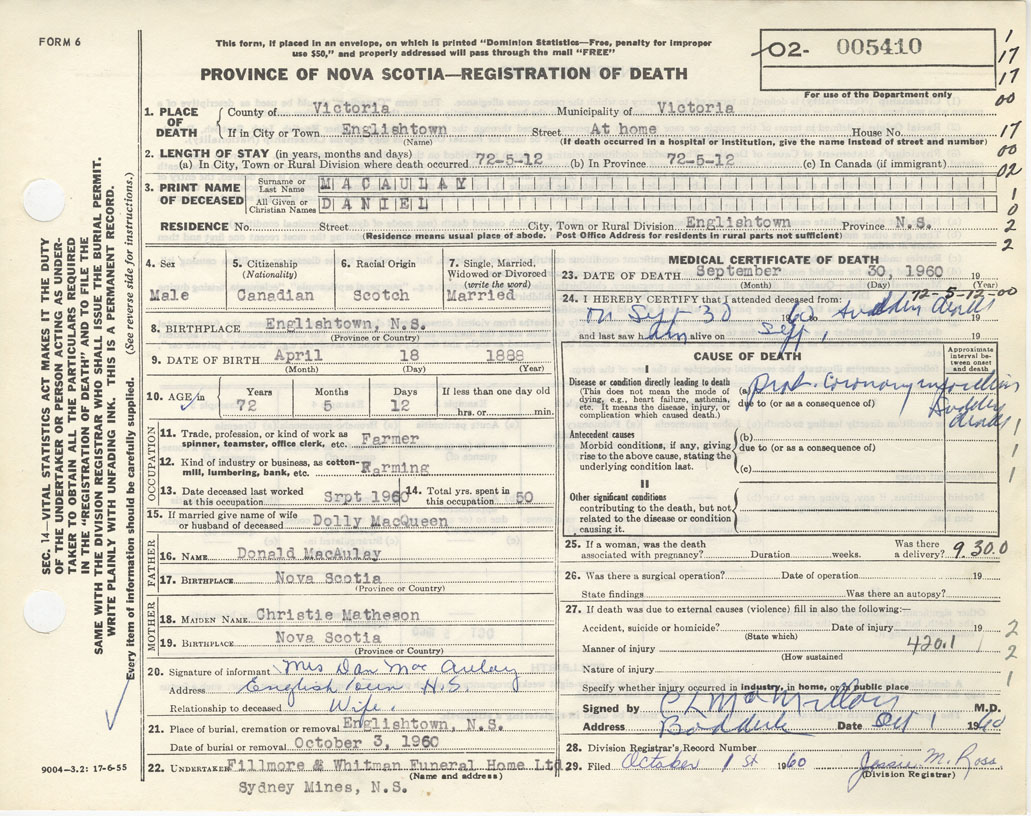 FORM 6
This form, if placed in an envelope, on which is printed "Dominion Statistics—Free, penalty for improper
use $50," and properly addressed will pass through the mail "FREE"
PROVINCE OF NOVA SCOTIA—REGISTRATION OF DEATH
02- 005410
For use of the Department only
1
17
17
00
17
00
02
1
0
2
2
1. PLACE OF DEATH
County of Victoria Municipality of Victoria
If in City or Town Englishtown Street At home House No.
(Name) (If death occurred in a hospital or Institution, give the name instead of street and number)
2. LENGTH OF STAY (in years, months and days)
(a) In City, Town or Rural Division where death occurred 72-5-12 (b) In Province 72-5-12 (c) In Canada (if immigrant)
3. PRINT NAME OF DECEASED
Surname or Last Name MACAULAY
All Given or Christian Names DANIEL
RESIDENCE No. Street City, Town or Rural Division Englishtown Province N.S.
(Residence means usual place of abode. Post Office Address for residents in rural parts not sufficient)
4. Sex
Male
5. Citizenship
(Nationality)
Canadian
6. Racial Origin
Scotch
7. Single, Married,
Widowed or Divorced
(write the word)
Married
8. BIRTHPLACE Englishtown, N.S.
(Province or Country)
9. DATE OF BIRTH April 18 1888
(Month) (Day) (Year)
10. AGE in
Years Months Days If less than one day old
72 5 12 hrs. or min.
OCCUPATION
11. Trade, profession, or kind of work as
spinner, teamster, office clerk, etc. Farmer
12. Kind of industry or business, as cotton-
mill, lumbering, bank, etc. Farming
13. Date deceased last worked
at this occupation Srpt 1960
14. Total yrs. spent in
this occupation 60
15. If married give name of wife
or husband of deceased Dolly MacQueen
FATHER
16. NAME Donald MacAulay
17. BIRTHPLACE Nova Scotia
(Province or Country)
MOTHER
18. MAIDEN NAME Christie Matheson
19. BIRTHPLACE Nova Scotia
(Province or Country)
20. Signature of informant Mrs Dan MacAulay
Address English Town N.S.
Relationship to deceased Wife.
21. Place of burial, cremation or removal Englishtown, N.S.
Date of burial or removal October 3, 1960
22. UNDERTAKER Fillmore & Whitman Funeral Home Ltd
(Name and address)
Sydney Mines, N.S.
MEDICAL CERTIFICATE OF DEATH
23. DATE OF DEATH September 30, 1960 19
(Month) (Day) (Year)
72-5-12-00
24. I HEREBY CERTIFY that I attended deceased from:
on Sept 30 1960 sudden death 19
and last saw him alive on Sept, 19
CAUSE OF DEATH
Approximate
interval be-
tween onset
and death
I
Disease or condition directly leading to death
(This does not mean the mode of
dying, e.g., heart failure, asthenia,
etc. It means the disease, injury, or
complication which caused death.)
(a) Prob. Coronary
due to (or as a consequence of)
Sudden
death
Antecedent causes
Morbid conditions, if any, giving
rise to the above cause, stating the
underlying condition last.
(b)
due to (or as a consequence of)
(c)
II
Other significant conditions
contributing to the death, but not
related to the disease or condition
causing it.
1
1
1
25. If a woman, was the death
associated with pregnancy? Duration weeks. Was there
a delivery? 9.30.0
26. Was there a surgical operation? Date of operation 19
State findings Was there an autopsy?
27. If death was due to external causes (violence) fill in also the following:—
Accident, suicide or homicide? Date of injury 19
(State which)
Manner of injury 420.1
(How sustained
Nature of injury
Specify whether injury occurred in industry, in home, or in public place
2
2
1
Signed by C L MacMillan M.D.
Address Baddeck Date Oct 1 1960
28. Division Registrar's Record Number
29. Filed October 1st 1960 Jessie M. Ross
(Division Registrar)
SEC. 14—VITAL STATISTICS ACT MAKES IT THE DUTY
OF THE UNDERTAKER OR PERSON ACTING AS UNDER-
TAKER TO OBTAIN ALL THE PARTICULARS REQUIRED
IN THE "REGISTRATION OF DEATH" AND FILE THE
SAME WITH THE DIVISION REGISTRAR WHO SHALL ISSUE THE BURIAL PERMIT.
WRITE PLAINLY WITH UNFADING INK. THIS IS A PERMANENT RECORD.
Every item of information should be carefully supplied. (See reverse side for instructions.)
9004-3.2: 17-6-55